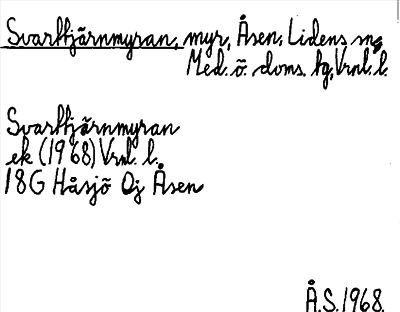 Svarttjärnmyran, myr, Åsen, Lidens sn,
Med. ö. doms. hg, Vrnl. l.
Svarttjärnmyran
ek (1968) Vrnl. l.
18G Håsjö 0j Åsen
Å.S. 1968.